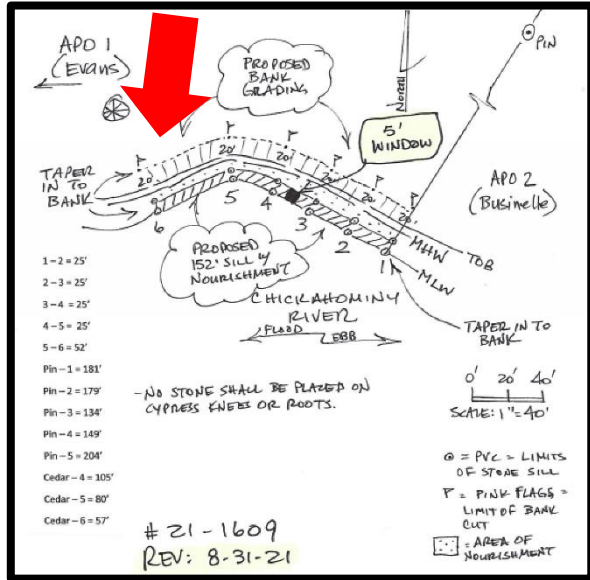 APO 1
(Evans)
PROPOSED
BANK
GRADING
NORTH
PIN
5'
WINDOW
APO 2
(Businelle)
TAPER
IN TO
BANK
20'
20'
20'
20'
20'
6
5
4
3
2
1
MHW
TOB
MLW
PROPOSED
152' SILL W/
NOURISHMENT
CHICKAHOMINY
RIVER
FLOOD
EBB
TAPER IN TO
BANK
1 – 2 = 25'
2 – 3 = 25'
3 – 4 = 25'
4 – 5 = 25'
5 – 6 = 52'
Pin – 1 = 181'
Pin – 2 = 179'
Pin – 3 = 134'
Pin – 4 = 149'
Pin – 5 = 204'
Cedar – 4 = 105'
Cedar – 5 = 80'
Cedar – 6 = 57'
- NO STONE SHALL BE PLACED ON
CYPRESS KNEES OR ROOTS.
0' 20' 40'
SCALE: 1"=40'
= PVC = LIMITS
OF STONE SILL
= PINK FLAGS =
LIMIT OF BANK
CUT
= AREA OF
NOURISHMENT
# 21-1609
REV: 8-31-21